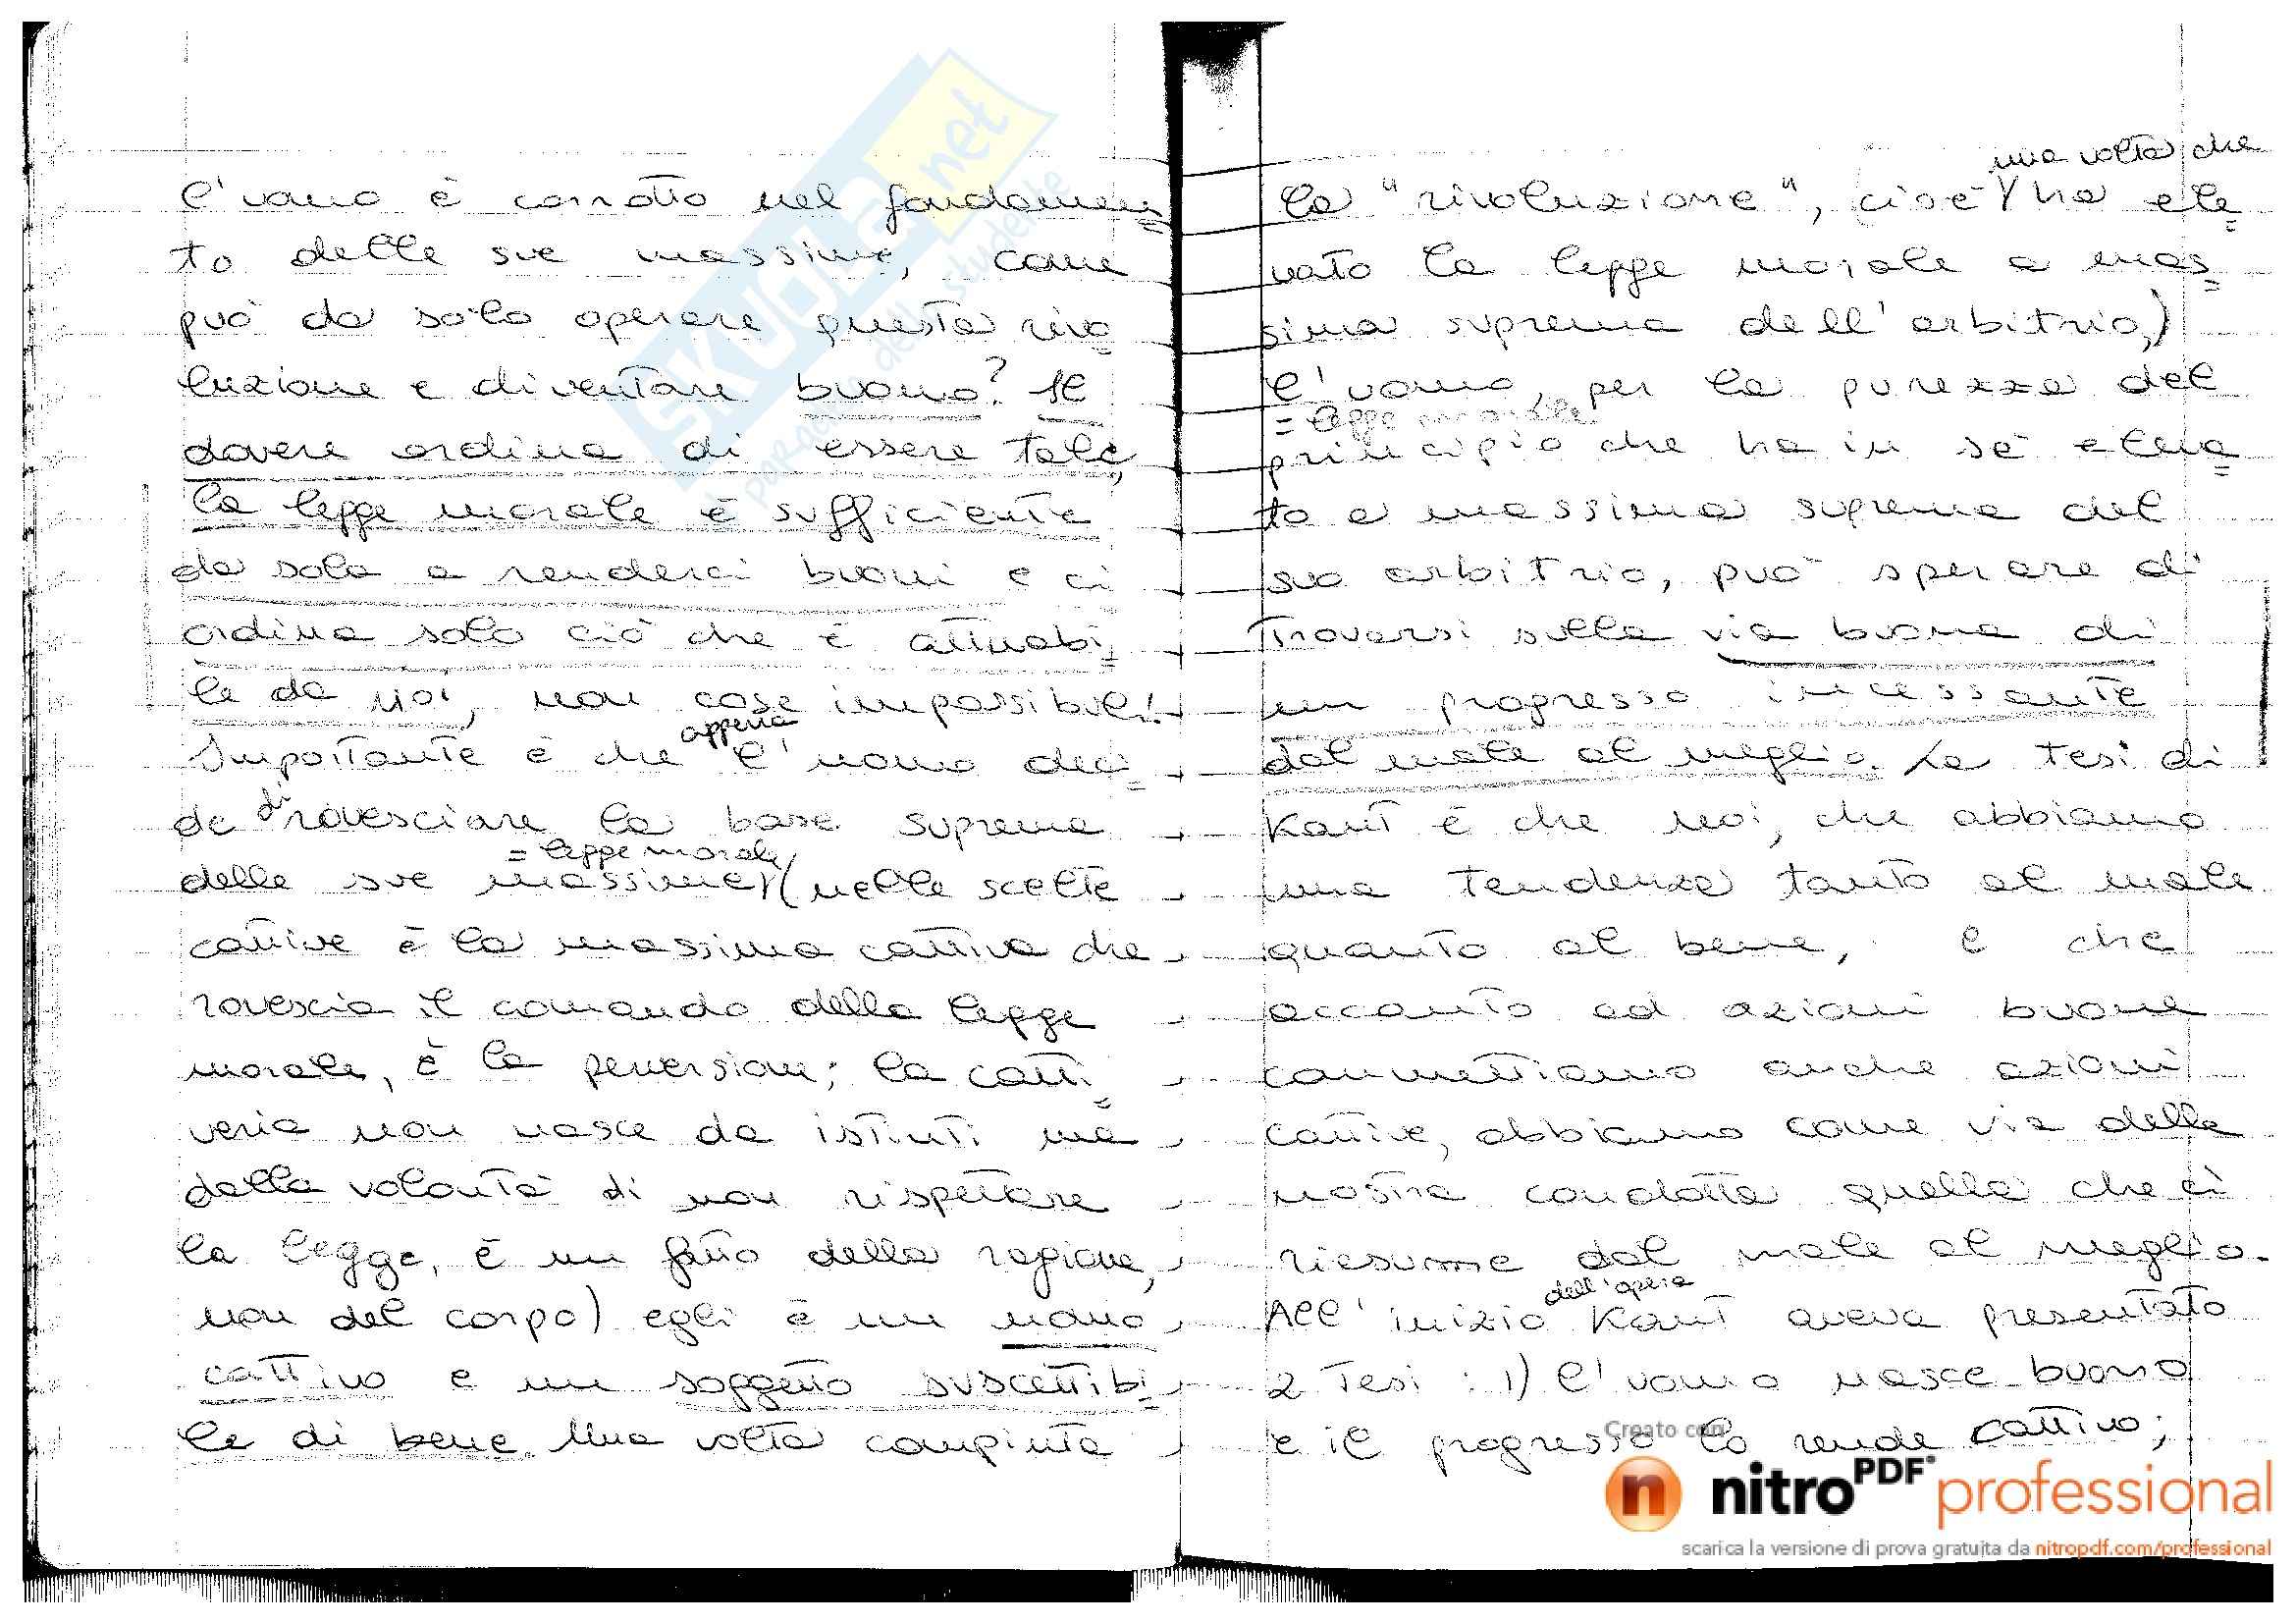 l'uomo è corrotto nel fondamen=
to delle sue massime, come
può da solo operare questa rivo=
luzione e diventare buono? Il
dovere ordina di essere tale,
la legge morale è sufficiente
da sola a renderci buoni e ci
ordina solo ciò che è attuabi=
le da noi, non cose impossibili!
appena
Importante è che l'uomo deci=
de di rovesciare la base suprema
= legge morale
delle sue massime (nelle scelte
cattive è la massima cattiva che
rovescia il comando della legge
morale, è la perversione; la catti=
veria non nasce da istinti ma
dalla volontà di non rispettare
la legge, è un fatto della ragione,
non del corpo) egli è un uomo
cattivo e un soggetto suscettibi=
le di bene. Una volta compiuta
una volta che
la "rivoluzione", cioè ha ele=
vato la legge morale a mas=
sima suprema dell'arbitrio,)
l'uomo, per la purezza del
= legge morale
principio che ha in sé eleva=
to a massima suprema del
suo arbitrio, può sperare di
trovarsi sulla via buona di
un progresso incessante
dal male al meglio. La tesi di
Kant è che noi, che abbiamo
una tendenza tanto al male
quanto al bene, e che
accanto ad azioni buone
commettiamo anche azioni
cattive, abbiamo come via della
nostra condotta quella che ci
riesume dal male al meglio.
dell'opera
All'inizio Kant aveva presentato
2 tesi: 1) l'uomo nasce buono
e il progresso lo rende cattivo;
SKUOLA.net
il paradiso dello studente
Creato con
nitroPDF professional
scarica la versione di prova gratuita da nitropdf.com/professional